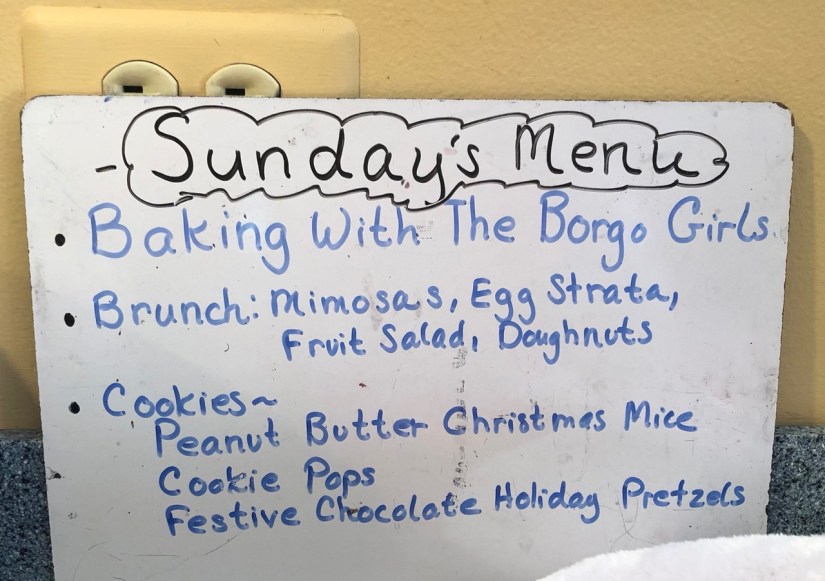 - Sunday's Menu
• Baking With The Borgo Girls
• Brunch: Mimosas, Egg Strata,
Fruit Salad, Doughnuts
• Cookies~
Peanut Butter Christmas Mice
Cookie Pops
Festive Chocolate Holiday Pretzels